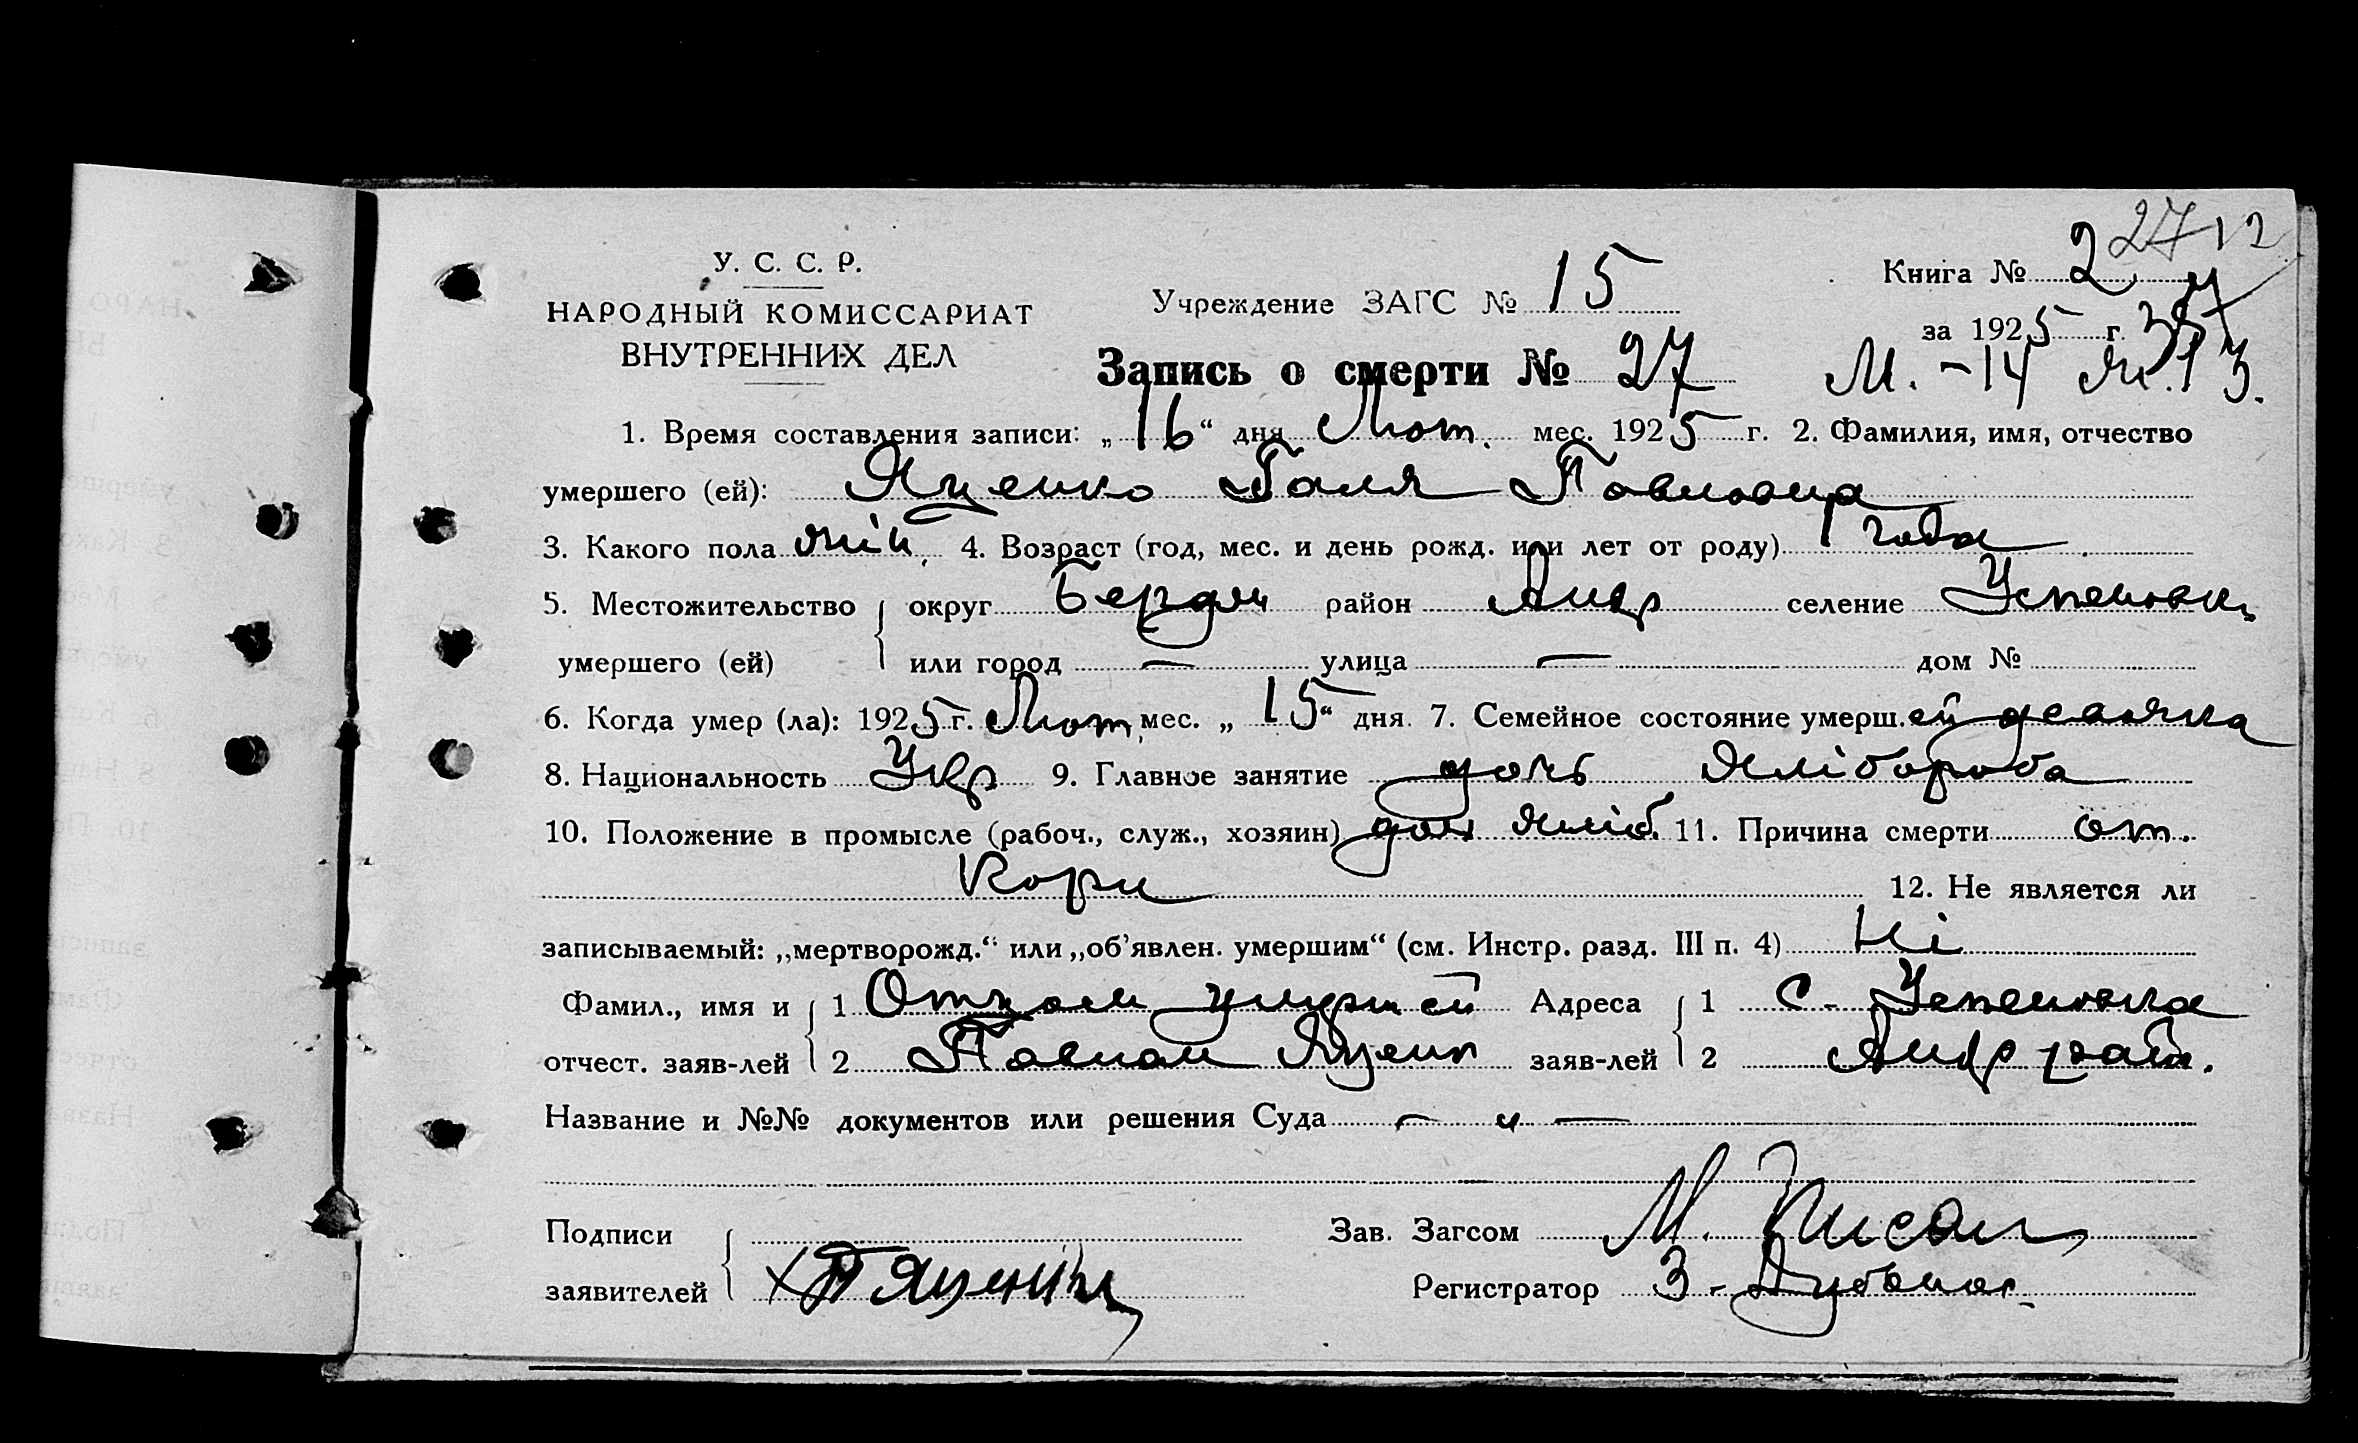 У. С. С. Р.
НАРОДНЫЙ КОМИССАРИАТ
ВНУТРЕННИХ ДЕЛ
Учреждение ЗАГС № 15
Книга № 2
27 12
за 1925 г.
Запись о смерти № 27
М. - 14
1. Время составления записи: „16“ дня Лют. мес. 1925 г. 2. Фамилия, имя, отчество
умершего (ей): Яценко Галя Павловна
3. Какого пола жін. 4. Возраст (год, мес. и день рожд. или лет от роду) 1 года
5. Местожительство округ Бердян район Андр селение Успеновка
умершего (ей) или город — улица — дом №
6. Когда умер (ла): 1925 г. Лют. мес. „15“ дня. 7. Семейное состояние умерш.ей девочка
8. Национальность Укр 9. Главное занятие дочь хлібороба
10. Положение в промысле (рабоч., служ., хозяин) доч хліб. 11. Причина смерти от.
Кори 12. Не является ли
записываемый: „мертворожд.“ или „об’явлен. умершим“ (см. Инстр. разд. III п. 4) Ні
Фамил., имя и 1 Отцом умершей Адреса 1 с - Успеновка
отчест. заяв-лей 2 Павлом Яценк заяв-лей 2 Андр рай.
Название и №№ документов или решения Суда — „ —
Подписи Зав. Загсом М.
заявителей П Яценко Регистратор З -